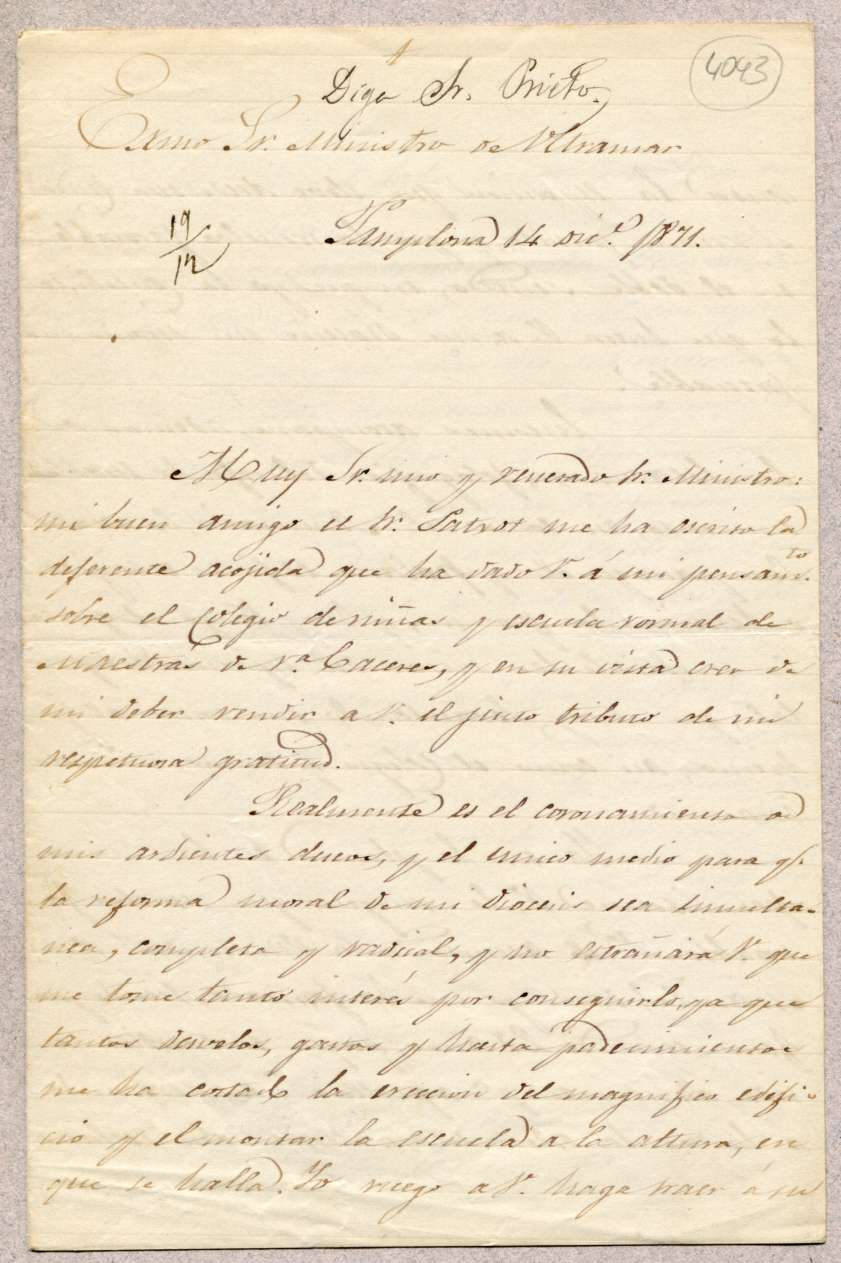 4043
Diga Sr. Prieto.
Exmo Sr. Ministro de Ultramar
19/12
Pamplona 14 dic.e 1871.
Muy Sr. mio y venerado Sr. Ministro:
mi buen amigo el Sr. me ha escrito la
deferente acojida que ha dado V. á mi pensam.to
sobre el Colegio de niñas y escuela normal de
Maestras de N.a Caceres, y en su vista creo de
mi deber rendir a V. el justo tributo de mi
respetuosa gratitud.
Realmente es el coronamiento de
mis ardientes deseos, y el unico medio para q.
la reforma moral de mi diocesis sea simulta-
nea, completa y radical, y no estrañará V. que
me tome tanto interés por conseguirlo, ya que
tantos desvelos, gastos y hasta padecimientos
me ha costado la ereccion del magnifico edifi-
cio y el montar la escuela a la altura, en
que se halla. Yo ruego a V. haga traer á su